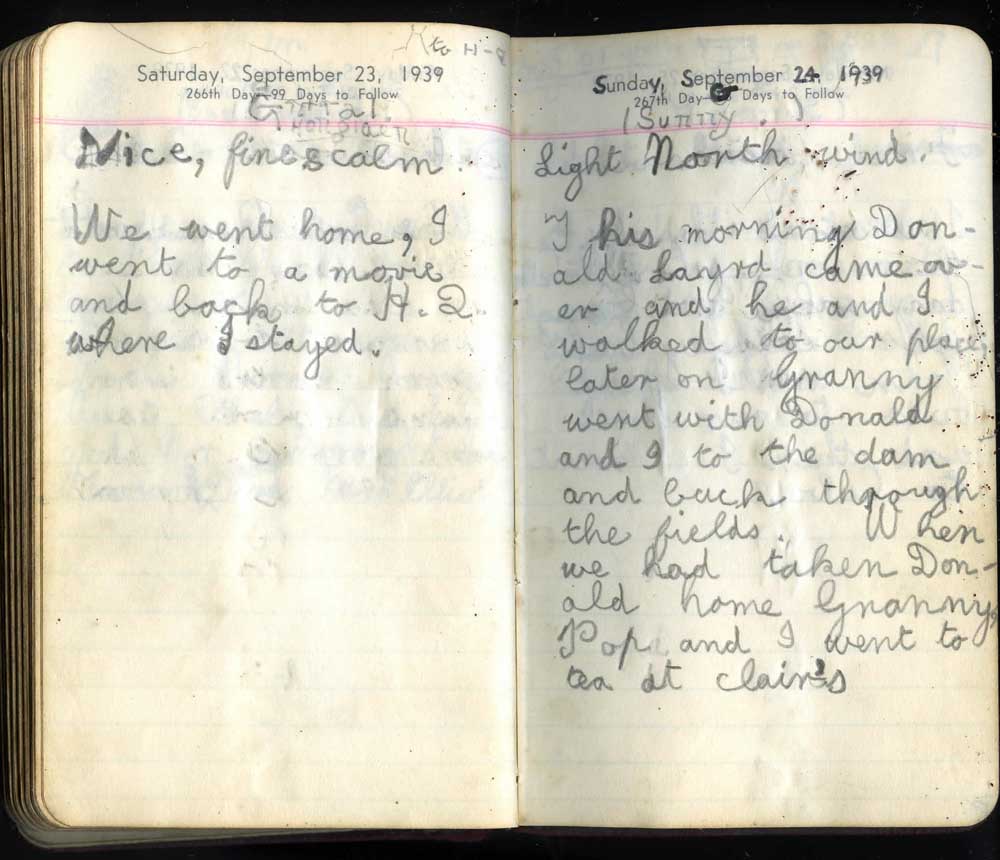 to H-
Saturday, September 23, 1939
266th Day—99 Days to Follow
Nice, fine &calm.
We went home, I
went to a movie
and back to H.Q.
where I stayed.
Sunday, September 24, 1939
267th Day— Days to Follow
(Sunny.)
Light North wind.
This morning Don-
ald Layrd came ov-
er and he and I
walked to our place,
later on Granny
went with Donald
and I to the dam
and back through
the fields. When
we had taken Don-
ald home Granny,
Pop and I went to
tea at Clair's